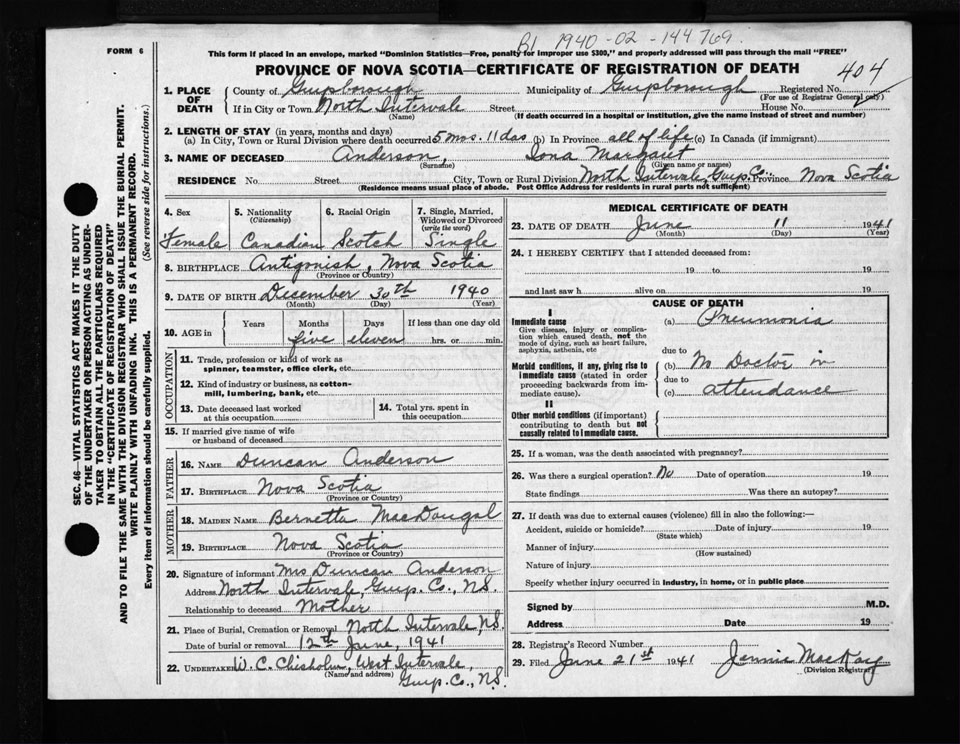 B1 1940-02-144769
FORM 6
This form if placed in an envelope, marked "Dominion Statistics—Free, penalty for improper use $300," and properly addressed will pass through the mail "FREE"
PROVINCE OF NOVA SCOTIA—CERTIFICATE OF REGISTRATION OF DEATH
404
1. PLACE OF DEATH
County of Guysborough Municipality of Guysborough Registered No.
(For use of Registrar General only)
If in City or Town North Intervale Street House No.
(Name) (If death occurred in a hospital or institution, give the name instead of street and number)
2. LENGTH OF STAY (in years, months and days)
(a) In City, Town or Rural Division where death occurred 5 mos. 11 das (b) In Province all of life (c) In Canada (if immigrant)
3. NAME OF DECEASED Anderson, Iona Margaret
(Surname) (Given name or names)
RESIDENCE No. Street City, Town or Rural Division North Intervale, Guys. Co. Province Nova Scotia
(Residence means usual place of abode. Post Office Address for residents in rural parts not sufficient)
4. Sex
Female
5. Nationality (Citizenship)
Canadian
6. Racial Origin
Scotch
7. Single, Married, Widowed or Divorced (write the word)
Single
8. BIRTHPLACE Antigonish, Nova Scotia
(Province or Country)
9. DATE OF BIRTH December 30th 1940
(Month) (Day) (Year)
10. AGE in Years Months Days If less than one day old
five eleven hrs. or min.
OCCUPATION
11. Trade, profession or kind of work as spinner, teamster, office clerk, etc.
12. Kind of industry or business, as cotton-mill, lumbering, bank, etc.
13. Date deceased last worked at this occupation
14. Total yrs. spent in this occupation
15. If married give name of wife or husband of deceased
FATHER
16. NAME Duncan Anderson
17. BIRTHPLACE Nova Scotia
(Province or Country)
MOTHER
18. MAIDEN NAME Bernetta MacDougal
19. BIRTHPLACE Nova Scotia
(Province or Country)
20. Signature of informant Mrs Duncan Anderson
Address North Intervale, Guys. Co., N.S.
Relationship to deceased Mother
21. Place of Burial, Cremation or Removal North Intervale, N.S.
Date of burial or removal 12th June, 1941
22. UNDERTAKER W. C. Chisholm, West Intervale,
(Name and address) Guys. Co., N.S.
MEDICAL CERTIFICATE OF DEATH
23. DATE OF DEATH June 11 1941
(Month) (Day) (Year)
24. I HEREBY CERTIFY that I attended deceased from:
19 to 19
and last saw h alive on 19
CAUSE OF DEATH
I
Immediate cause
Give disease, injury or complication which caused death, not the mode of dying, such as heart failure, asphyxia, asthenia, etc
(a) Pneumonia
due to
Morbid conditions, if any, giving rise to immediate cause (stated in order proceeding backwards from immediate cause).
(b) No Doctor in
due to
(c) attendance
II
Other morbid conditions (if important) contributing to death but not causally related to immediate cause.
25. If a woman, was the death associated with pregnancy?
26. Was there a surgical operation? No Date of operation 19
State findings Was there an autopsy?
27. If death was due to external causes (violence) fill in also the following:—
Accident, suicide or homicide? Date of injury 19
(State which)
Manner of injury
(How sustained)
Nature of injury
Specify whether injury occurred in industry, in home, or in public place
Signed by M.D.
Address Date 19
28. Registrar's Record Number
29. Filed June 21st 1941 Jennie MacKay
(Division Registrar)
SEC. 46—VITAL STATISTICS ACT MAKES IT THE DUTY
OF THE UNDERTAKER OR PERSON ACTING AS UNDER-
TAKER TO OBTAIN ALL THE PARTICULARS REQUIRED
IN THE "CERTIFICATE OF REGISTRATION OF DEATH"
AND TO FILE THE SAME WITH THE DIVISION REGISTRAR WHO SHALL ISSUE THE BURIAL PERMIT.
WRITE PLAINLY WITH UNFADING INK. THIS IS A PERMANENT RECORD.
Every item of information should be carefully supplied. (See reverse side for instructions.)